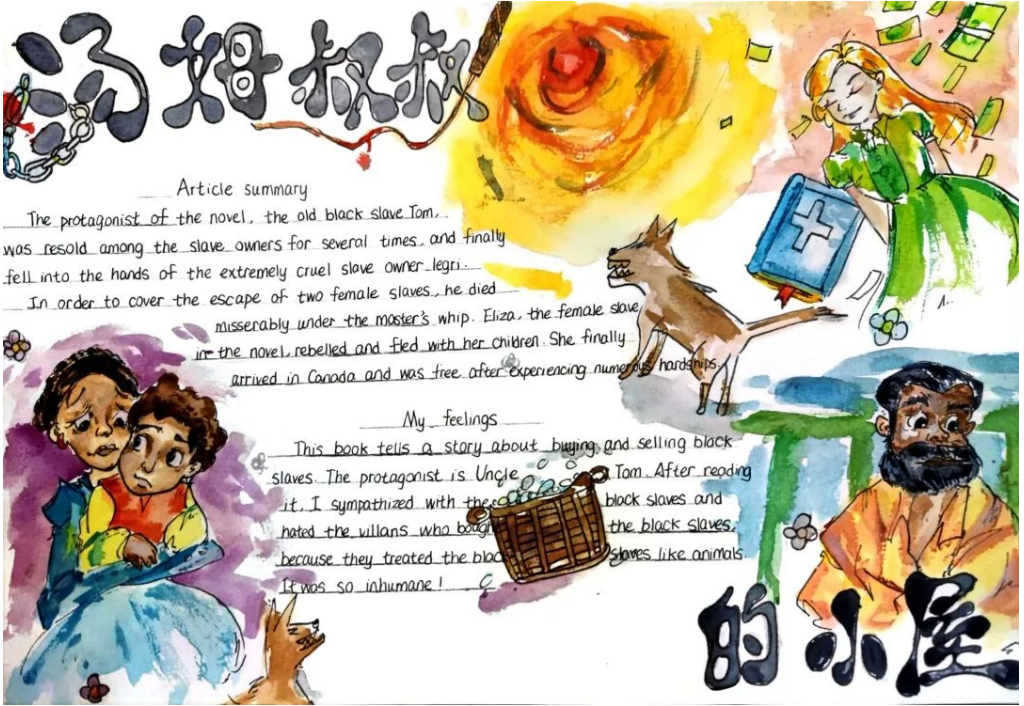 汤姆叔叔
Article summary
The protagonist of the novel, the old black slave Tom,
was resold among the slave owners for several times, and finally
fell into the hands of the extremely cruel slave owner legri.
In order to cover the escape of two female slaves, he died
misserably under the master's whip. Eliza, the female slave
in the novel, rebelled and fled with her children. She finally
arrived in Canada and was free after experiencing numerous hardships.
My feelings
This book tells a story about buying and selling black
slaves. The protagonist is Uncle Tom. After reading
it, I sympathized with the black slaves and
hated the villans who bought the black slaves,
because they treated the blac slaves like animals.
It was so inhumane!
的小屋